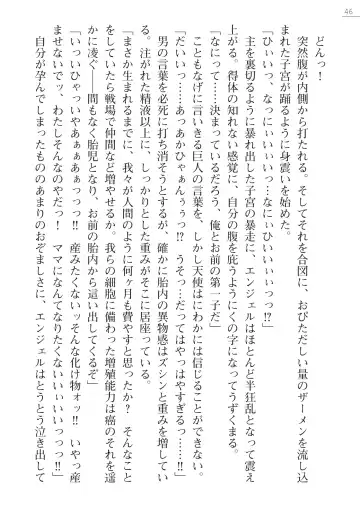 46
どんっ！
突然腹が内側から打たれる。そしてそれを合図に、おびただしい量のザーメンを流し込
まれた子宮が踊るように身震いを始めた。
「ひぃいっ、なっにぃぃいいっ…なにぃひいぃいぃっっ!?」
主を裏切るように暴れ出した子宮の暴走に、エンジェルはほとんど半狂乱となって震え
上がる。得体の知れない感覚に、自分の腹を庇うようにくの字になってうずくまる。
「なにって……決まっているだろう、俺とお前の第一子だ」
こともなげに言いきる巨人の言葉を、しかし天使はにわかには信じることができない。
「だいいっ……あっあかひゃぁんぅぅっ!?　うそっ…だってはやっはやすぎるっ……」
男の言葉を必死に打ち消そうとするが、確かに胎内の異物感はズシンと重みを増してい
る。注がれた精液以上に、しっかりとした重みがそこに居座っている。
「まさか生まれるまでに、我々が人間のように何ヶ月も費やすと思ったか？　そんなこと
をしていたら戦場で仲間など増やせるか。我らの細胞に備わった増殖能力は癌のそれを遥
かに凌ぐ――間もなく胎児となり、お前の胎内から這い出してくるぞ」
「いっいひゃっいやあぁぁあぁっっっ!!　産みたくないっそんな化け物ォッ!!　いやっ産
ませないでッ、わたしそんなのやだっ！　ママになんてなりたくないいぃいいっっ!!」
自分が孕んでしまったもののあまりのおぞましさに、エンジェルはとうとう泣き出して